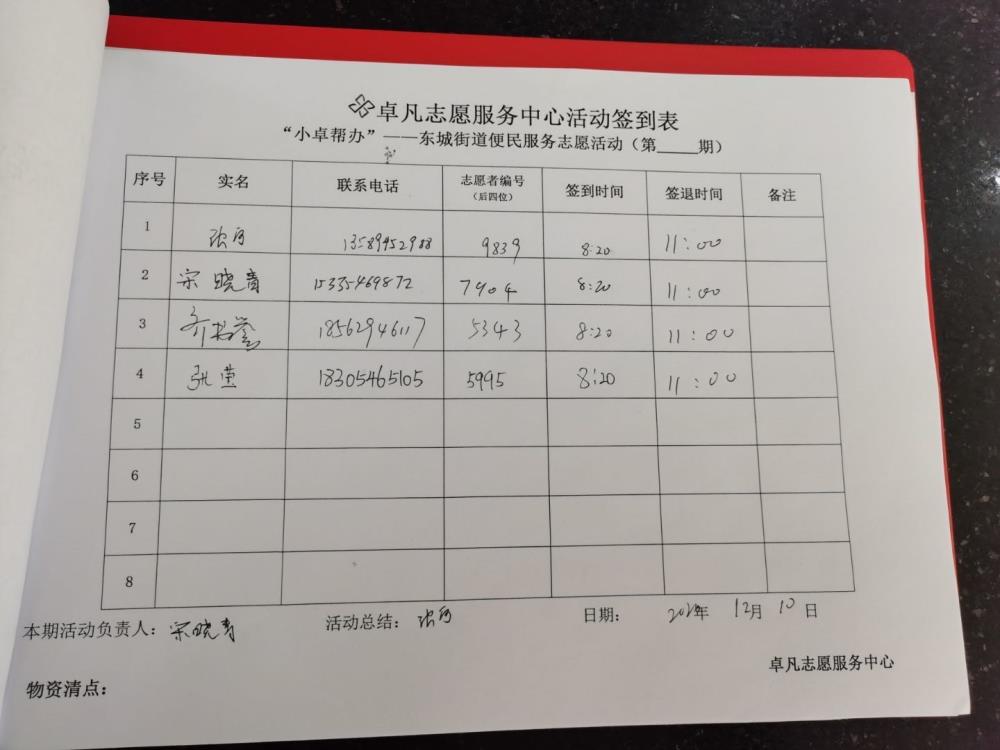 卓凡志愿服务中心活动签到表
“小卓帮办”——东城街道便民服务志愿活动（第____期）
序号 实名 联系电话 志愿者编号（后四位） 签到时间 签退时间 备注
1 13589452988 9839 8:20 11:00
2 宋晓青 15335469872 7904 8:20 11:00
3 18562946117 5343 8:20 11:00
4 张莹 18305465105 5995 8:20 11:00
5
6
7
8
本期活动负责人：宋晓青 活动总结： 日期： 年 12月 10日
卓凡志愿服务中心
物资清点：